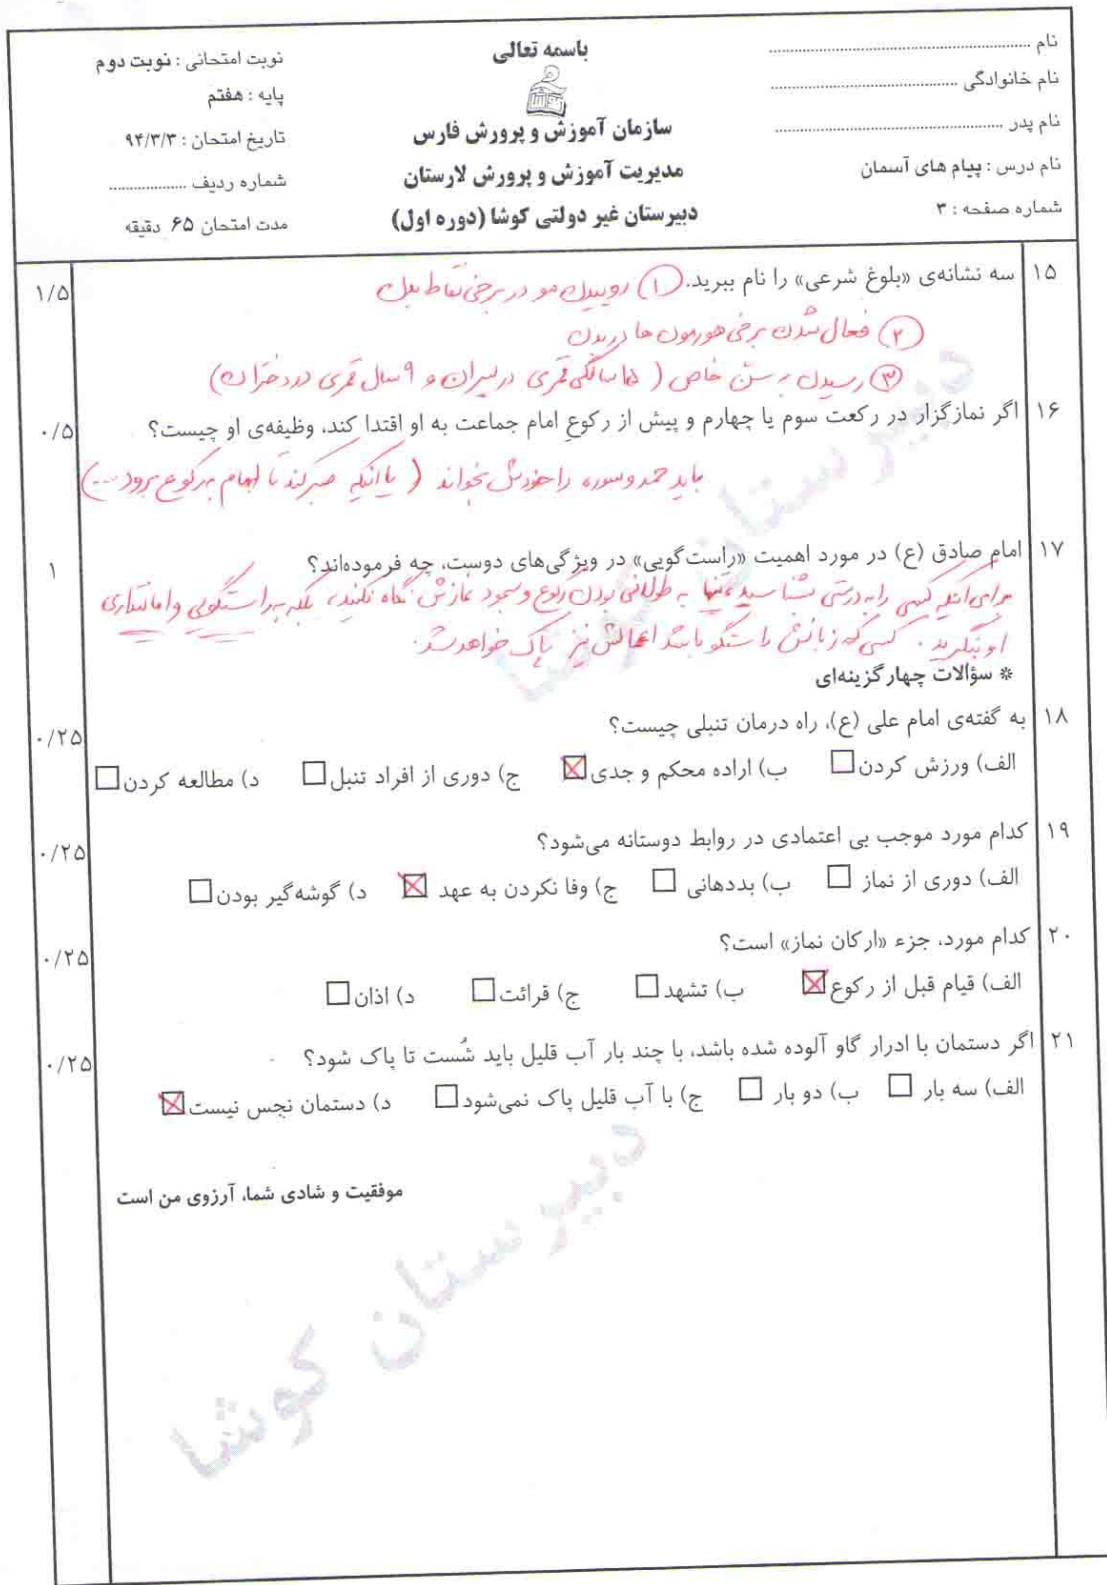 باسمه تعالی
نام ........................
نام خانوادگی ........................
نام پدر ........................
نام درس : پیام های آسمان
شماره صفحه : ۳
سازمان آموزش و پرورش فارس
مدیریت آموزش و پرورش لارستان
دبیرستان غیر دولتی کوشا (دوره اول)
نوبت امتحانی : نوبت دوم
پایه : هفتم
تاریخ امتحان : ۹۴/۳/۳
شماره ردیف ..................
مدت امتحان ۶۵ دقیقه
۱۵ سه نشانه‌ی «بلوغ شرعی» را نام ببرید. ① روییدن مو در برخی نقاط بدن ۱/۵
② فعال شدن برخی هورمون ها در بدن
③ رسیدن به سن خاص ( ۱۵ سالگی قمری در پسران و ۹ سال قمری در دختران)
۱۶ اگر نمازگزار در رکعت سوم یا چهارم و پیش از رکوع امام جماعت به او اقتدا کند، وظیفه‌ی او چیست؟ ۰/۵
باید حمد و سوره را خودش بخواند ( یا آنکه صبر کند تا امام به رکوع برود ...)
۱۷ امام صادق (ع) در مورد اهمیت «راست‌گویی» در ویژگی‌های دوست، چه فرموده‌اند؟ ۱
برای آنکه کسی را به درستی بشناسید، تنها به طولانی بودن رکوع و سجود نمازش نگاه نکنید، بلکه به راستگویی و امانتداری
او بنگرید. کسی که زبانش راستگو باشد اعمالش نیز پاک خواهد شد.
* سؤالات چهارگزینه‌ای
۱۸ به گفته‌ی امام علی (ع)، راه درمان تنبلی چیست؟ ۰/۲۵
الف) ورزش کردن☐ ب) اراده محکم و جدی☒ ج) دوری از افراد تنبل☐ د) مطالعه کردن☐
۱۹ کدام مورد موجب بی اعتمادی در روابط دوستانه می‌شود؟ ۰/۲۵
الف) دوری از نماز ☐ ب) بددهانی ☐ ج) وفا نکردن به عهد ☒ د) گوشه‌گیر بودن☐
۲۰ کدام مورد، جزء «ارکان نماز» است؟ ۰/۲۵
الف) قیام قبل از رکوع☒ ب) تشهد☐ ج) قرائت☐ د) اذان☐
۲۱ اگر دستمان با ادرار گاو آلوده شده باشد، با چند بار آب قلیل باید شُست تا پاک شود؟ ۰/۲۵
الف) سه بار ☐ ب) دو بار ☐ ج) با آب قلیل پاک نمی‌شود☐ د) دستمان نجس نیست☒
موفقیت و شادی شما، آرزوی من است
دبیرستان کوشا
دبیرستان کوشا